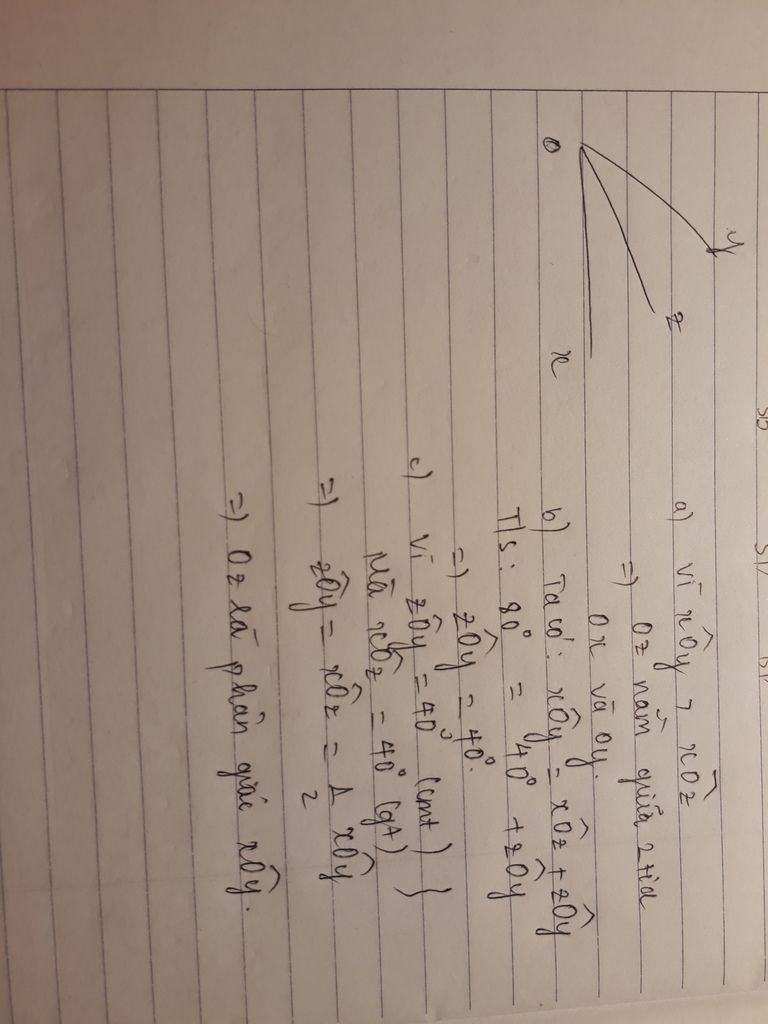 y
z
O
x
a) Vì xÔy > xÔz
=) Oz nằm giữa 2 tia
Ox và Oy.
b) Ta có: xÔy = xÔz + zÔy
T/s: 80° = 40° + zÔy
=) zÔy = 40°.
c) Vì zÔy = 40° (cmt) }
Mà xÔz = 40° (gt)
=) zÔy = xÔz = 1/2 xÔy
=) Oz là phân giác xÔy.